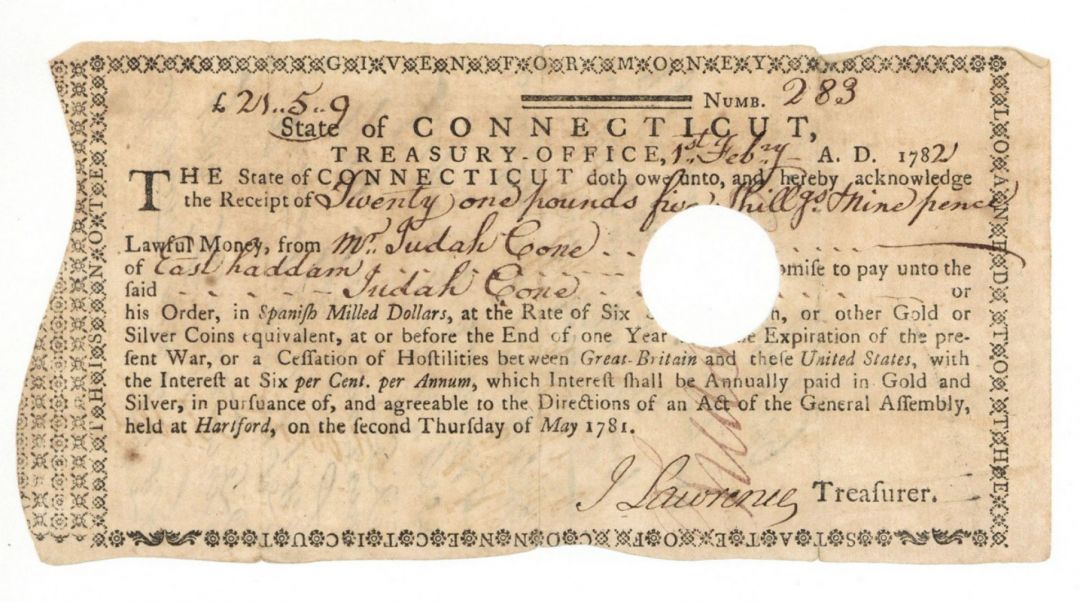 GIVEN FOR MONEY
£ 21..5..9 NUMB. 283
State of CONNECTICUT,
TREASURY-OFFICE, 1st Feb:ry A. D. 1782
THE State of CONNECTICUT doth owe unto, and hereby acknowledge
the Receipt of Twenty one pounds five Shillgs & nine pence
Lawful Money, from Mr. Judah Cone
of East haddam to pay unto the
ſaid Judah Cone or
his Order, in Spaniſh Milled Dollars, at the Rate of Six or other Gold or
Silver Coins equivalent, at or before the End of one Year Expiration of the pre-
ſent War, or a Ceſſation of Hoſtilities between Great-Britain and theſe United States, with
the Intereſt at Six per Cent. per Annum, which Intereſt ſhall be Annually paid in Gold and
Silver, in purſuance of, and agreeable to the Directions of an Act of the General Aſſembly,
held at Hartford, on the ſecond Thurſday of May 1781.
J Lawrence Treaſurer.
LOANED TO THE
STATE OF CONNECTICUT
THIS NOTE IS